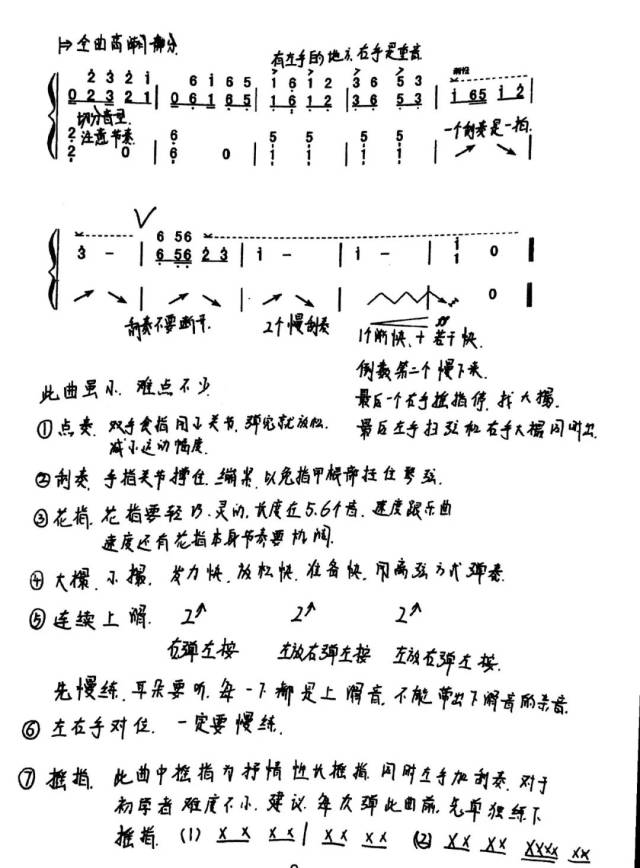 全曲高潮部分
有左手的地方右手是重音
2 3 2 1 6 1 6 5 1 6 1 2 3 6 5 3
0 2 3 2 1 0 6 1 6 5 1 6 1 2 3 6 5 3 1 6 5 1 2
切分音型 一个刮奏是一拍.
注意节奏.
2 6 5 5 5 5
2 0 6 0 1 1 1 1
6 56
3 - 6 56 2 3 1 - 1 - 1 0
1
0
刮奏不要断开. 2个慢刮奏 ff
1个渐快, + 若干快.
倒数第二个慢下来.
此曲虽小, 难点不少 最后一个右手摇指停, 找大撮.
①点奏. 双手食指用小关节, 弹完就放松. 最后左手扫弦和右手大撮同时出.
减小运动幅度.
②刮奏. 手指关节撑住. 绷紧. 以免指甲根部挂住琴弦.
③花指. 花指要轻巧. 灵动. 长度在5.6个音. 速度跟乐曲
速度还有花指本身节奏要协调.
④大撮. 小撮. 发力快. 放松快. 准备快. 用离弦方式弹奏.
⑤连续上滑. 2↗ 2↗ 2↗
右弹左按 左放右弹左按 左放右弹左按.
先慢练. 耳朵要听. 每一下都是上滑音. 不能带出下滑音的杂音.
⑥左右手对位. 一定要慢练.
⑦摇指. 此曲中摇指为抒情性长摇指. 同时左手加刮奏. 对于
初学者难度不小. 建议. 每次弹此曲前. 先单独练下
摇指. (1) X X X X | X X X X (2) X X X X XXXX XX